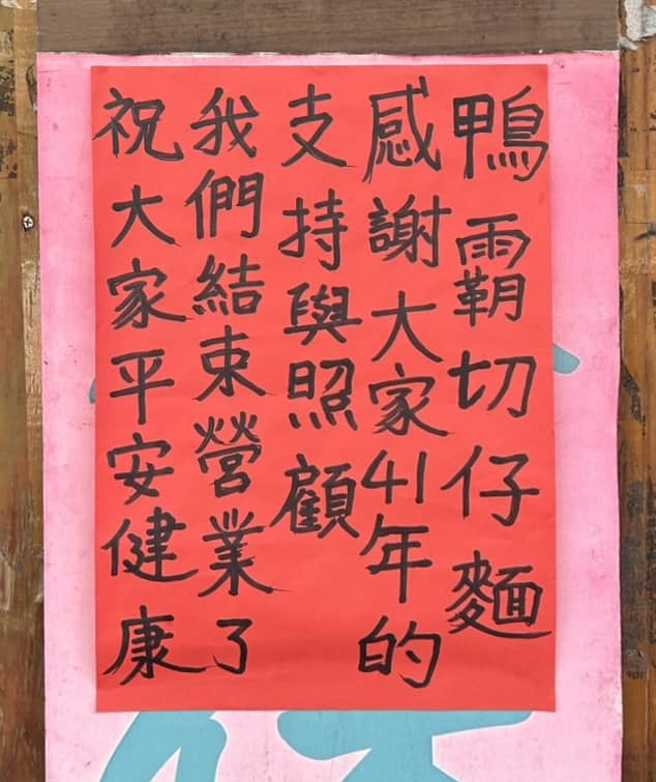 鴨霸切仔麵
感謝大家41年的
支持與照顧
我們結束營業了
祝大家平安健康